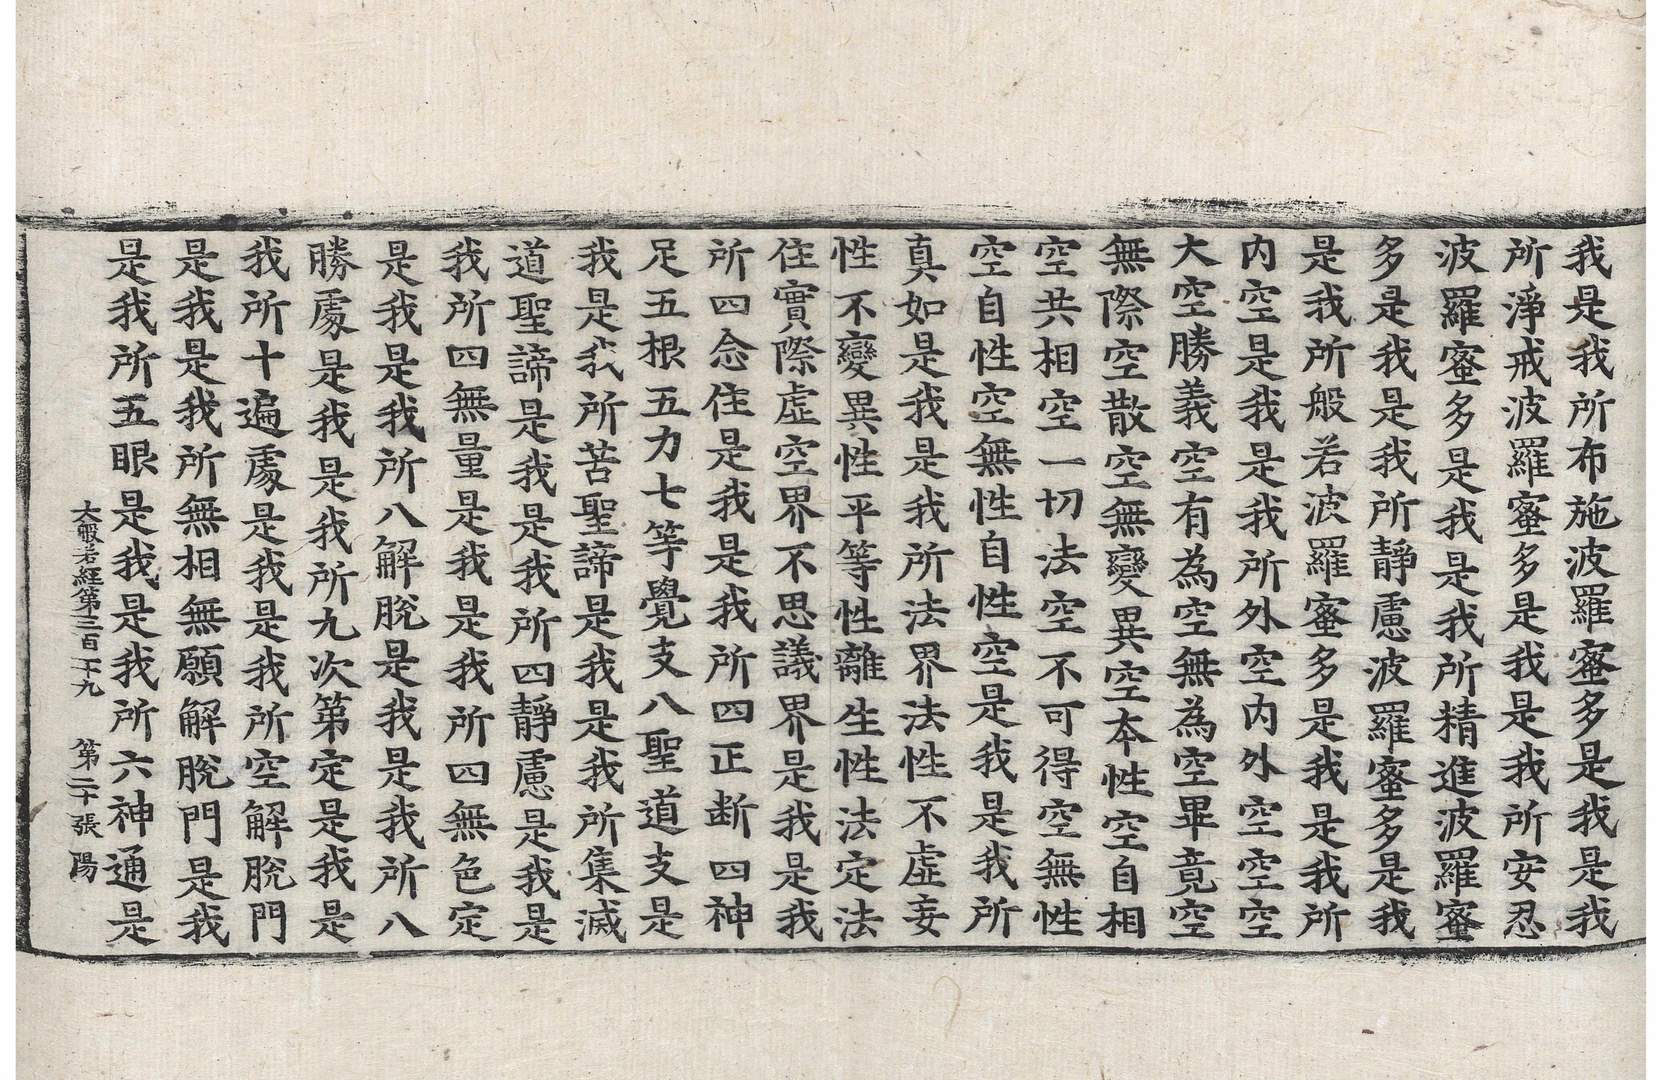 我是我所布施波羅蜜多是我是我
所淨戒波羅蜜多是我是我所安忍
波羅蜜多是我是我所精進波羅蜜
多是我是我所靜慮波羅蜜多是我
是我所般若波羅蜜多是我是我所
内空是我是我所外空内外空空空
大空勝義空有為空無為空畢竟空
無際空散空無變異空本性空自相
空共相空一切法空不可得空無性
空自性空無性自性空是我是我所
真如是我是我所法界法性不虛妄
性不變異性平等性離生性法定法
住實際虛空界不思議界是我是我
所四念住是我是我所四正断四神
足五根五力七等覺支八聖道支是
我是我所苦聖諦是我是我所集滅
道聖諦是我是我所四靜慮是我是
我所四無量是我是我所四無色定
是我是我所八解脫是我是我所八
勝處是我是我所九次第定是我是
我所十遍處是我是我所空解脫門
是我是我所無相無願解脫門是我
是我所五眼是我是我所六神通是
大般若経第三百一十九 第二十張 陽